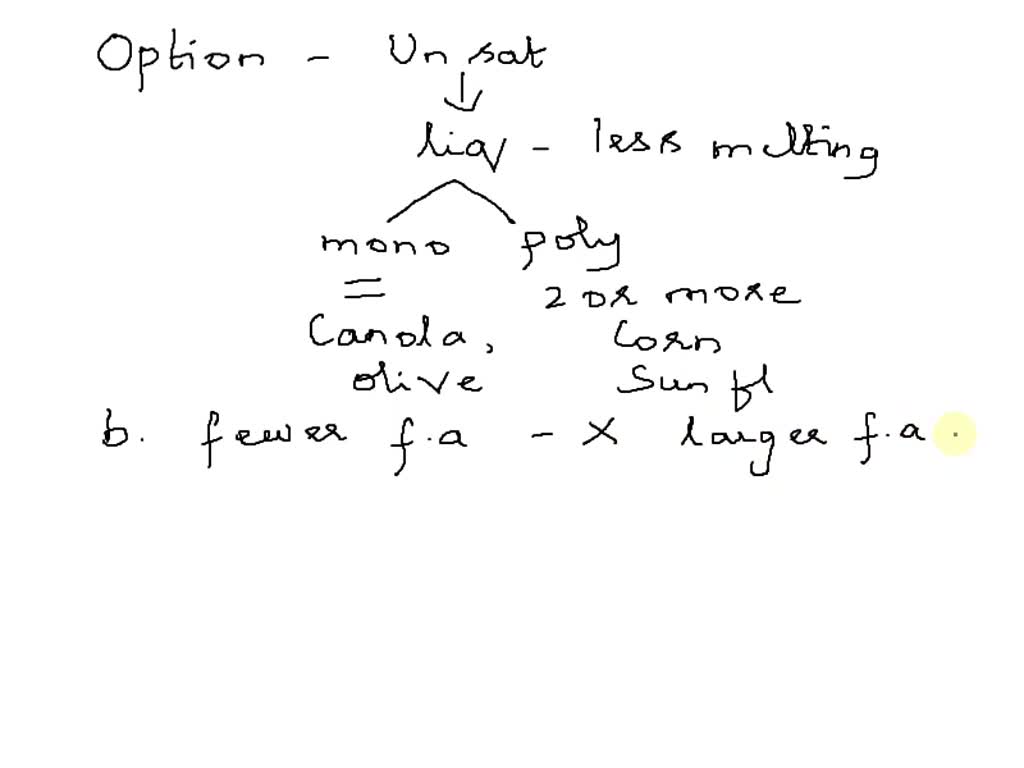 Option - Unsat
↓
liq - less melting
mono poly
= 2 or more
Canola, Corn
olive Sun fl
b. fewer f.a - X larger f.a